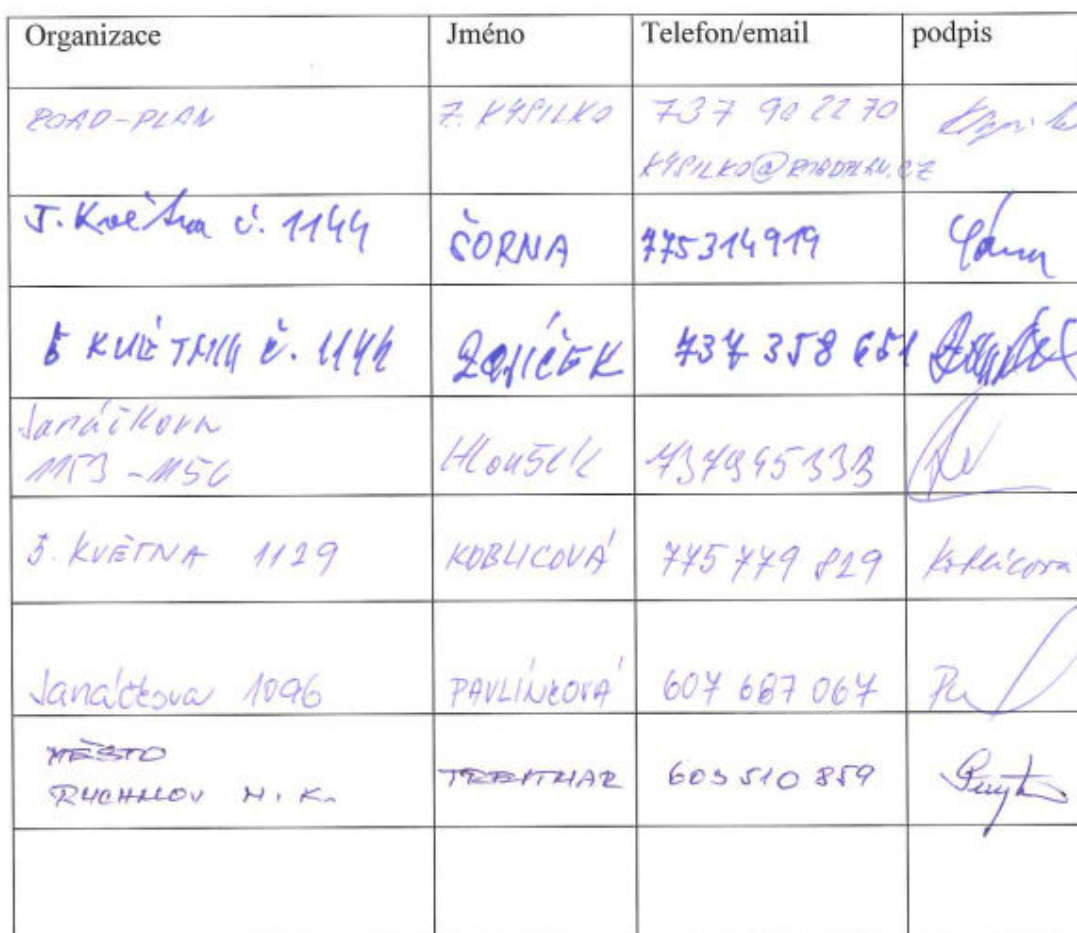 Organizace Jméno Telefon/email podpis
ROAD-PLAN Z. KYSILKO 737 90 22 70
KYSILKO@ROADPLAN.CZ
5. Května č. 1144 ČORNA 775314919
5 KVĚTNA č. 1144 ZAJÍČEK 737 358 651
Janáčkova
1153-1156 Hloušek 737945333
5. KVĚTNA 1129 KOBLICOVÁ 775 779 829 Koblicová
Janáčkova 1096 PAVLÍNKOVÁ 607 687 067
MĚSTO
RYCHNOV N. K. 603 510 859